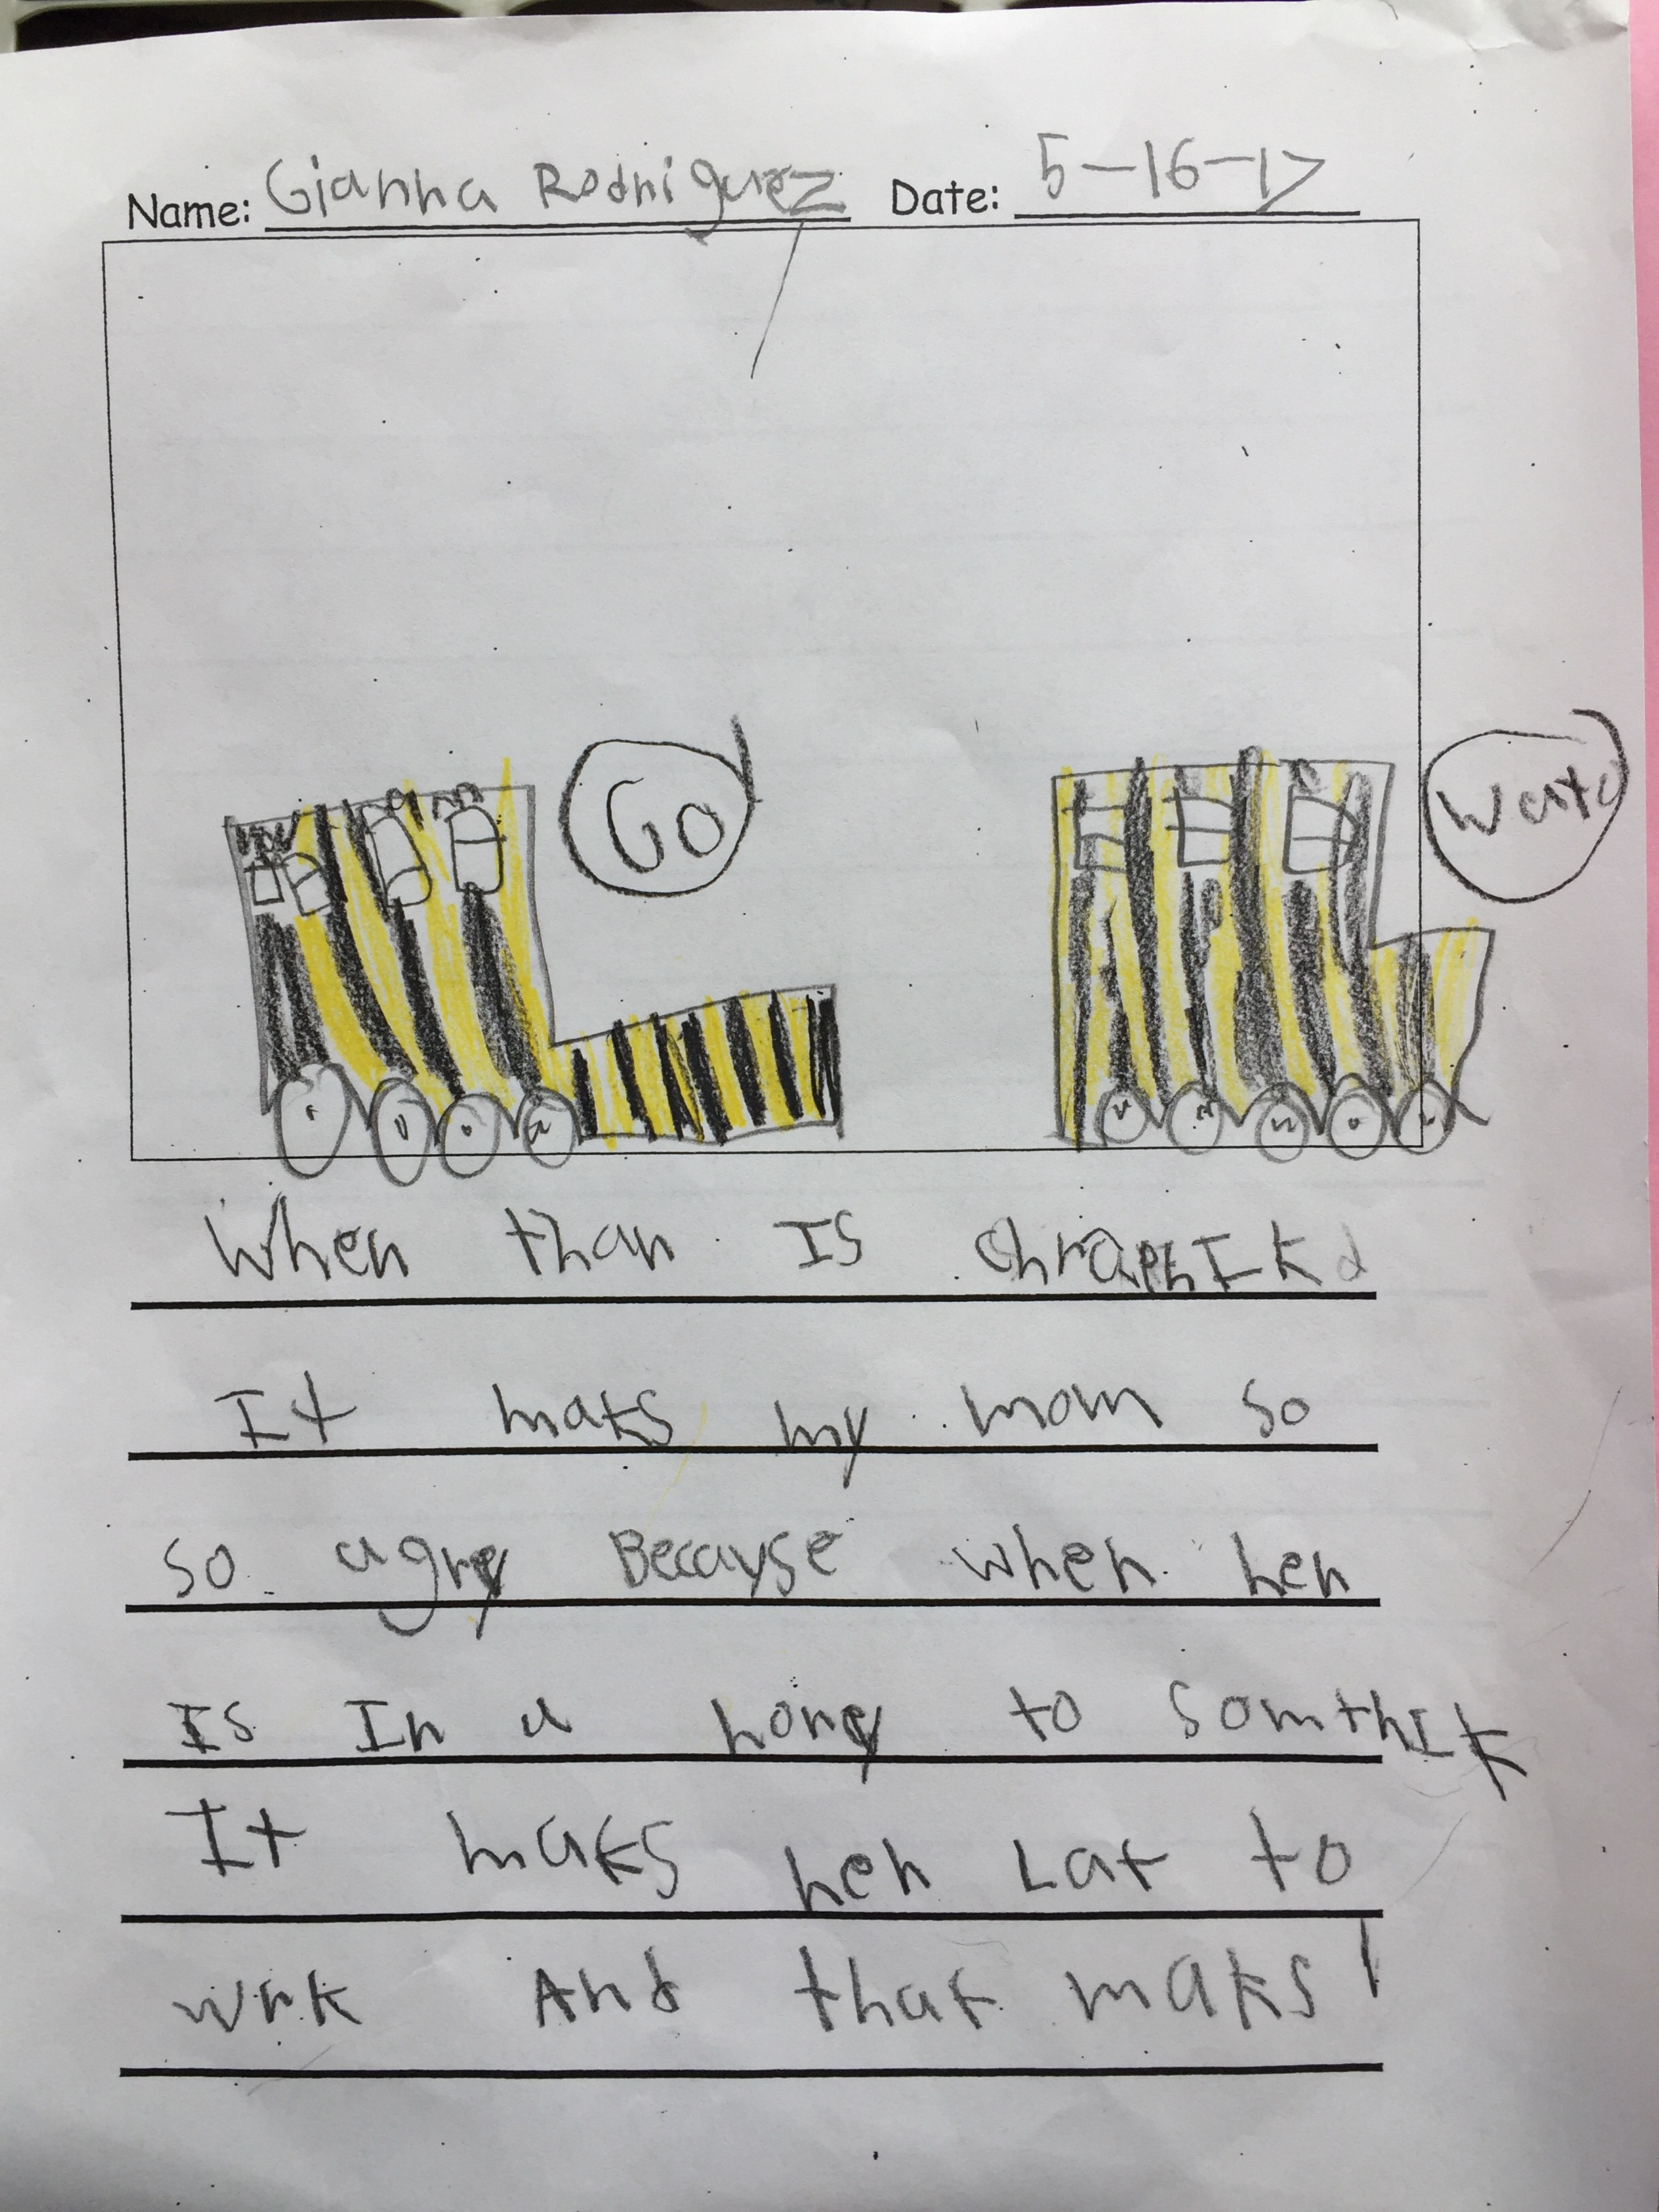 Name: Gianna Rodriguez Date: 5-16-17
Go
When thar Is
It maks my mom so
so agry Because when her
Is In a hory to somthIk
It maks her Lat to
wrk And that maks